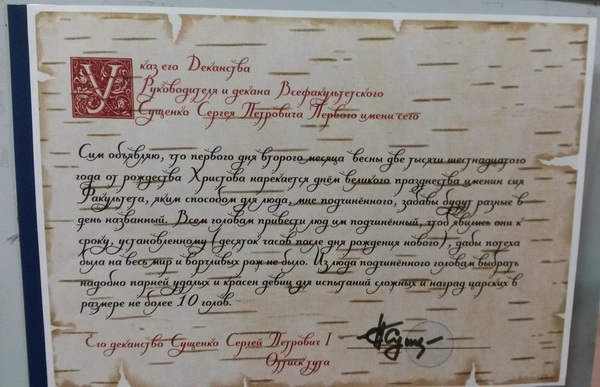 Указ его Деканства
Руководителя и декана Всефакультетского
Сущенко Сергея Петровича Первого имени сего
Сим объявляю, что первого дня второго месяца весны две тысячи шестнадцатого
года от рождества Христова нарекается днём великого празднества именин сия
Факультета, яким способом для люда, мне подчинённого, забавы будут разные в
день названный. Всем головам привести люд им подчинённый, чтоб явились они к
сроку, установленному (десяток часов после дня рождения нового), дабы потеха
была на весь мир и ворчливых рож не было. Из люда подчинённого головам выбрать
надобно парней удалых и красен девиц для испытаний сложных и наград царских в
размере не более 10 голов.
Его деканство Сущенко Сергей Петрович I
Оттиск тута